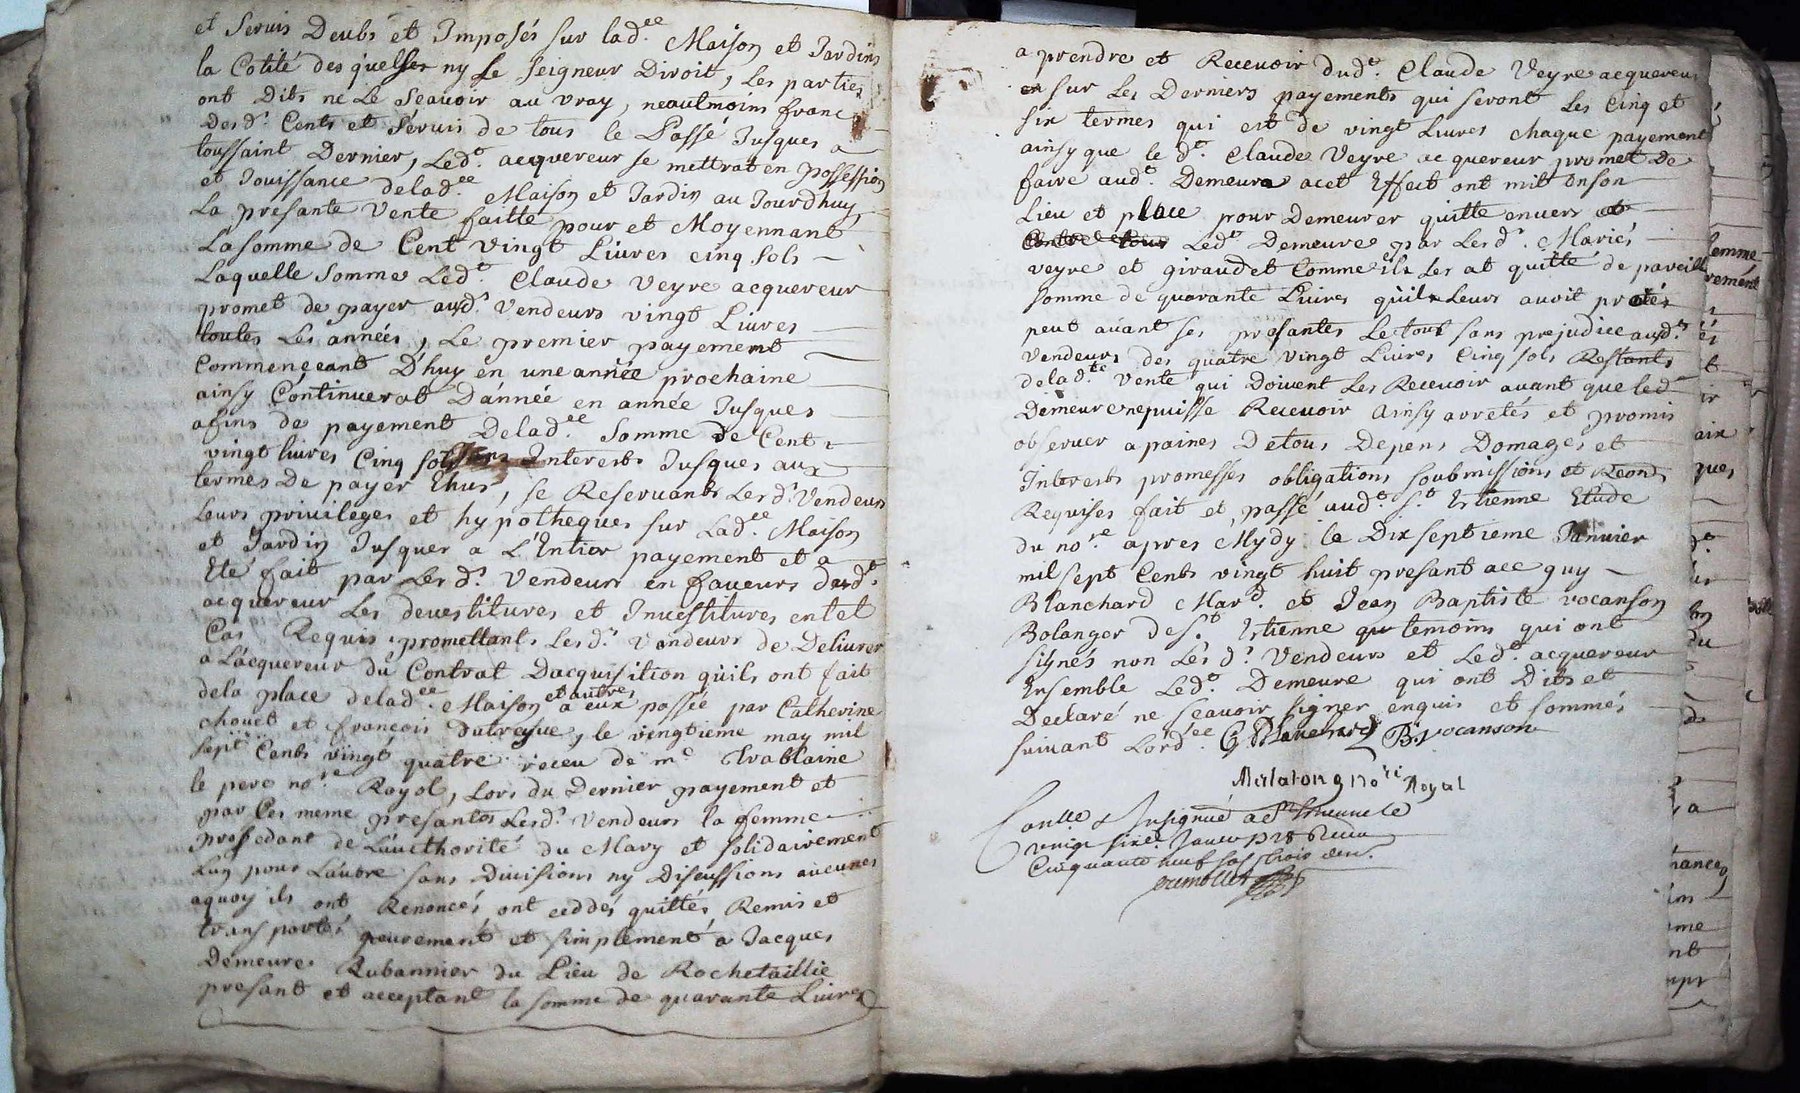 et Servis Deubs et Imposés sur lad.ee Maison et Jardins
la Cotité des quelsser ny le Seigneur Diroit, Les parties
ont Dits ne Le Scauoir au vray, neautmoins franc
Des d.s Cents et Servis de tous le Passé Jusques a
toussaint Dernier, Led.t acquereur se mettrat en possession
et Jouissance delad.ee Maison et Jardin au Jourdhuy,
La presante Vente faitte pour et Moyennant
La somme de Cent vingt Liures cinq sols
Laquelle somme Led.t Claude Veyre acquereur
promet de payer ausd.s Vendeurs vingt Liures
toutes Les années, Le premier payement
Commenceant D'huy en une année prochaine
ainsy Continuerat D'année en année Jusques
afins de payement Delad.ee Somme de Cent
vingt liures Cinq sols sans Interests Jusques aux
termes De payer Ehus, se Reseruants Les d.s Vendeurs
Leurs priuileges et hypotheques sur Lad.ee Maison
et Jardin Jusques a L'Entier payement et a
Ete fait par Les d.s Vendeurs en faueurs dud.t
acquereur Les deuestitures et Inuestitures en tel
Cas Requis, promettants Les d.s Vendeurs de Deliurer
a Lacquereur du Contrat Dacquisition quils ont fait
dela place delad.ee Maison et autres a eux passée par Catherine
chouet et françois Dutreyue, le vingtieme may mil
sept Cents vingt quatre receu de m.e Trablaine
le pere no.re Royal, Lors du Dernier payement et
par Ces meme presantes Lesd.s Vendeurs la femme
proffedant de Lauthorité du Mary et solidairement
Lun pour Lautre sans Diuisions ny Discussions aucunes
aquoy ils ont Renoncés, ont ceddés quittés, Remis et
transportés purement et simplement a Jacques
Demeure Rubannier du Lieu de Rochetaillie
presant et acceptant la somme de quarante Liures
a prendre et Receuoir dud.t Claude Veyre acquereur
en sur Les Derniers payements qui seront Les Cinq et
six termes qui est de vingt Liures chaque payement
ainsy que le d.t Claude Veyre acquereur promet De
faire aud.t Demeure acet Effect ont mit Enson
Lieu et place pour Demeurer quitte enuers et
Contre tous Led.t Demeure par Les d.s Mariés
veyre et giraudet Comme ils Les at quitté de pareille
somme de quarante Liures quils Leurs auoit pretés
peut auant Ses presantes Letout sans prejudice ausd.ts
Vendeurs des quatre vingt Liures Cinq sols Restants
delad.te Vente qui Doiuent Les Receuoir auant que led.t
Demeure nepuisse Receuoir Ainsy arretés et promis
obseruer apaines Detous Depens Domages et
Interests promesses obligations soubmissions et Reonds
Requises fait et passé aud.t S.t Estienne Etude
du no.re apres Mydy le Dix septieme Januier
mil sept Cents vingt huit presant acc guy
Blanchard Mar.d et Jean Baptiste vocanson
Bolanger de S.t Estienne temoins qui ont
signés non Les d.s Vendeurs et Led.t acquereur
Ensemble Led.t Demeure qui ont Dits et
Declaré ne Scauoir signer enquis et sommés
suiuant Lord.ee G Blanchard B. vocanson
no.re Royal
Con.lle & Insignué a S.t Etienne le
vingt sixe. Januier 1728 Receu
Cinquante neuf sols trois den.s